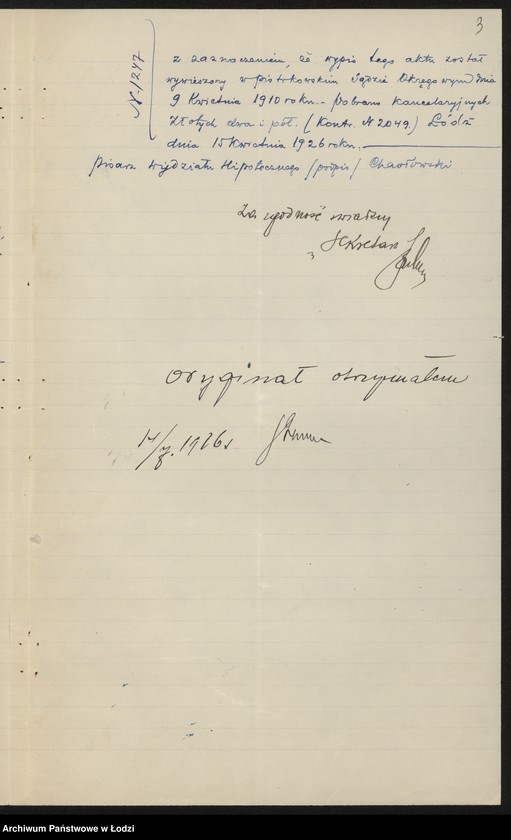 3
N. 1247
z zaznaczeniem, że wypis tego aktu został
wywieszony w piotrkowskim Sądzie Okręgowym dnia
9 Kwietnia 1910 roku. - Pobrano kancelaryjnych
złotych dwa i pół. (Kontr. N 2049.) Łódź
dnia 15 Kwietnia 1926 roku.
pisarz Wydziału Hipotecznego /podpis/
Za zgodność świadczy
Sekretarz
oryginał otrzymałem
1926 r
Archiwum Państwowe w Łodzi